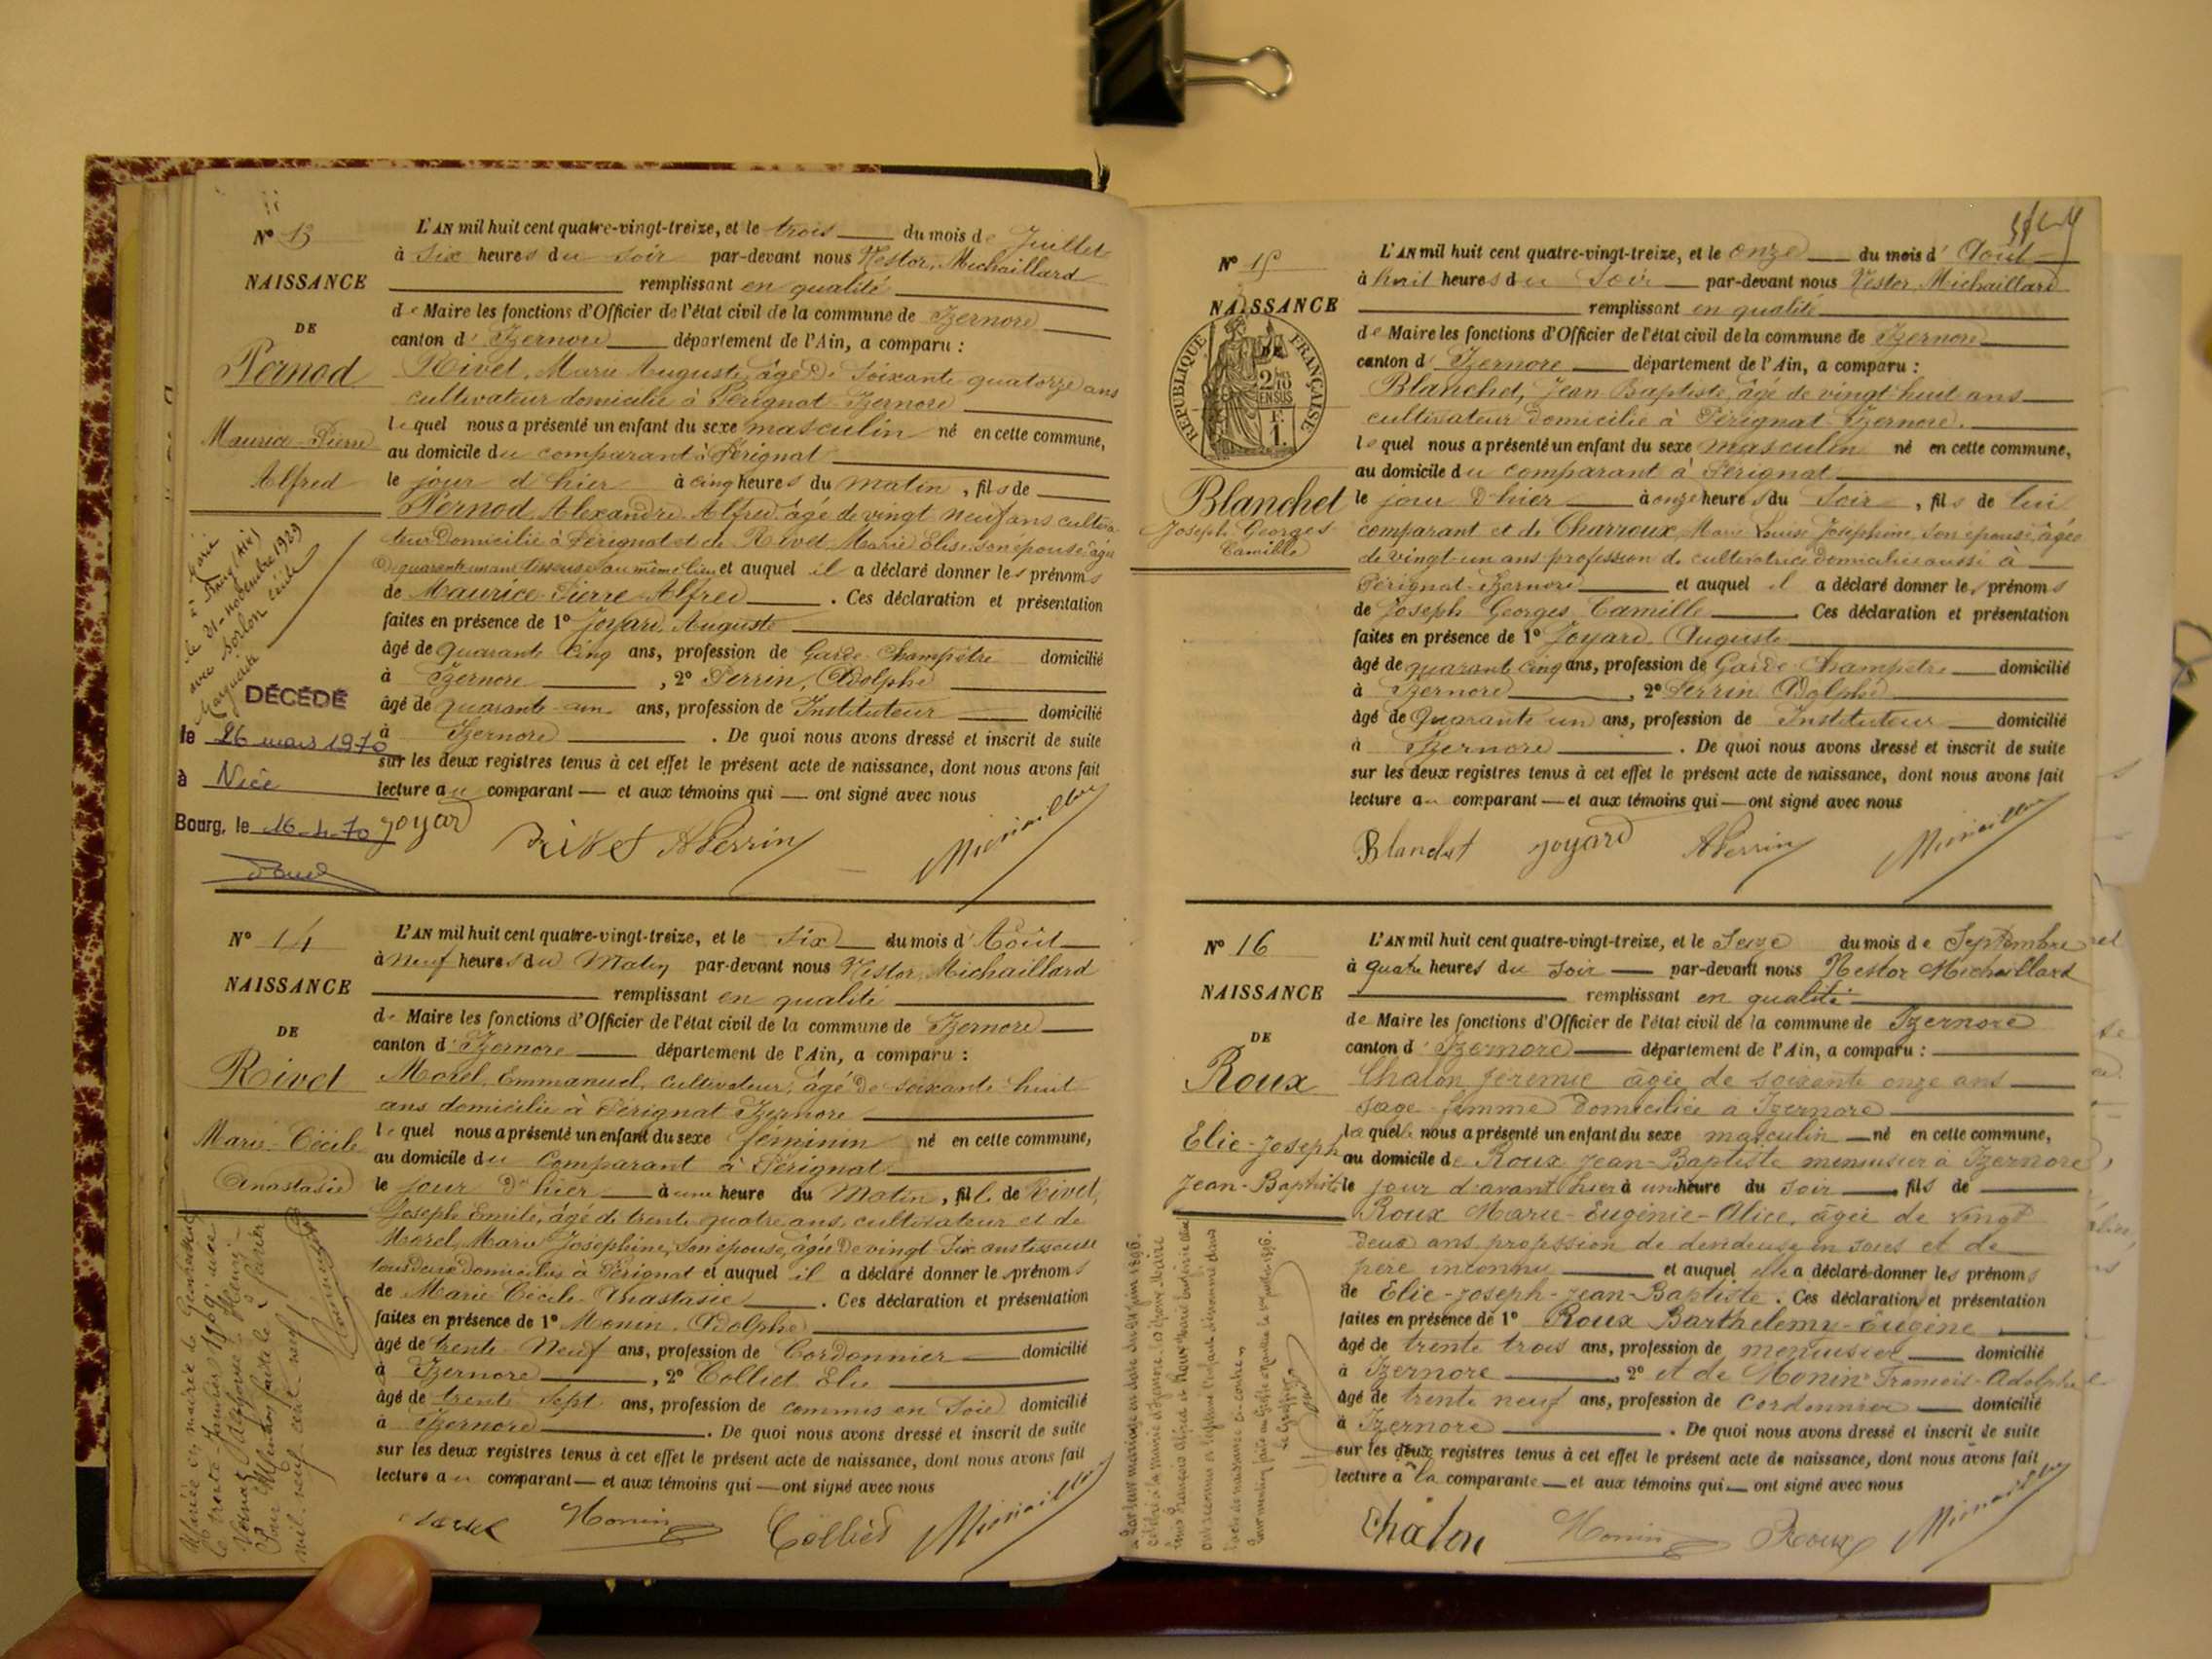 N° 13
NAISSANCE
DE
Pernod
Maurice-Pierre
Alfred
Marié
à Briey
le 21 novembre 1929
avec
Marguerite
DÉCÉDÉ
le 26 mars 1970
à Nice
Bourg, le 16-4-70
L'AN mil huit cent quatre-vingt-treize, et le trois du mois de Juillet
à six heures du soir par-devant nous Nestor, Michaillard
remplissant en qualité
de Maire les fonctions d'Officier de l'état civil de la commune de Izernore
canton d'Izernore département de l'Ain, a comparu :
Rivet, Marie Auguste, âgé de soixante quatorze ans
cultivateur domicilié à Pérignat Izernore
lequel nous a présenté un enfant du sexe masculin né en cette commune,
au domicile du comparant à Pérignat
le jour d'hier à cinq heures du matin, fils de
Pernod, Alexandre Alfred âgé de vingt neuf ans cultiva-
teur domicilié à Pérignat et de Rivet Marie Elise, son épouse âgée
de quarante un ans tisseuse au même lieu et auquel il a déclaré donner les prénoms
de Maurice-Pierre-Alfred. Ces déclaration et présentation
faites en présence de 1° Joyard, Auguste
âgé de quarante cinq ans, profession de Garde-champêtre domicilié
à Izernore, 2° Perrin, Adolphe
âgé de quarante-un ans, profession de Instituteur domicilié
à Izernore. De quoi nous avons dressé et inscrit de suite
sur les deux registres tenus à cet effet le présent acte de naissance, dont nous avons fait
lecture au comparant — et aux témoins qui — ont signé avec nous
Joyard Rivet A Perrin Michaillard
N° 14
NAISSANCE
DE
Rivet
Marie-Cécile
Anastasie
L'AN mil huit cent quatre-vingt-treize, et le six du mois d'Août
à neuf heures du Matin par-devant nous Nestor, Michaillard
remplissant en qualité
de Maire les fonctions d'Officier de l'état civil de la commune de Izernore
canton d'Izernore département de l'Ain, a comparu :
Morel, Emmanuel, cultivateur, âgé de soixante-huit
ans domicilié à Pérignat Izernore
lequel nous a présenté un enfant du sexe féminin né en cette commune,
au domicile du Comparant à Pérignat
le jour d'hier à une heure du Matin, fille de Rivet,
Joseph Emile, âgé de trente quatre ans, cultivateur et de
Morel, Marie Joséphine, son épouse, âgée de vingt six ans tisseuse
tous deux domiciliés à Pérignat et auquel il a déclaré donner les prénoms
de Marie Cécile-Anastasie. Ces déclaration et présentation
faites en présence de 1° Monin, Adolphe
âgé de trente-Neuf ans, profession de Cordonnier domicilié
à Izernore, 2° Colliet Elie
âgé de trente sept ans, profession de commis en Soie domicilié
à Izernore. De quoi nous avons dressé et inscrit de suite
sur les deux registres tenus à cet effet le présent acte de naissance, dont nous avons fait
lecture au comparant — et aux témoins qui — ont signé avec nous
Morel Monin Colliet Michaillard
N° 15
NAISSANCE
RÉPUBLIQUE FRANÇAISE
2/10 EN SUS
1 F.
Blanchet
Joseph Georges
Camille
L'AN mil huit cent quatre-vingt-treize, et le onze du mois d'Août
à huit heures du Soir par-devant nous Nestor, Michaillard
remplissant en qualité
de Maire les fonctions d'Officier de l'état civil de la commune de Izernore
canton d'Izernore département de l'Ain, a comparu :
Blanchet, Jean Baptiste, âgé de vingt huit ans
cultivateur domicilié à Pérignat Izernore.
lequel nous a présenté un enfant du sexe masculin né en cette commune,
au domicile du comparant à Pérignat
le jour d'hier à onze heures du soir, fils de lui
comparant et de Charroux, Marie Louise Joséphine, son épouse, âgée
de vingt-un ans profession de cultivatrice domiciliée aussi à
Pérignat-Izernore et auquel il a déclaré donner les prénoms
de Joseph Georges Camille Ces déclaration et présentation
faites en présence de 1° Joyard, Auguste
âgé de quarante cinq ans, profession de Garde-Champêtre domicilié
à Izernore, 2° Perrin Adolphe
âgé de Quarante un ans, profession de Instituteur domicilié
à Izernore. De quoi nous avons dressé et inscrit de suite
sur les deux registres tenus à cet effet le présent acte de naissance, dont nous avons fait
lecture au comparant — et aux témoins qui — ont signé avec nous
Blanchet Joyard A Perrin Michaillard
N° 16
NAISSANCE
DE
Roux
Elie-Joseph
Jean-Baptiste
L'AN mil huit cent quatre-vingt-treize, et le Seize du mois de Septembre
à quatre heures du soir par-devant nous Nestor Michaillard
remplissant en qualité
de Maire les fonctions d'Officier de l'état civil de la commune de Izernore
canton d'Izernore département de l'Ain, a comparu :
Chalon Jéremie âgée de soixante onze ans
sage-femme domiciliée à Izernore
laquelle nous a présenté un enfant du sexe masculin né en cette commune,
au domicile de Roux Jean-Baptiste menuisier à Izernore,
le jour d'avant hier à une heure du soir fils de
Roux Marie-Eugénie-Alice, âgée de vingt
deux ans profession de devideuse en soies et de
père inconnu et auquel elle a déclaré donner les prénoms
de Elie-Joseph-Jean-Baptiste. Ces déclaration et présentation
faites en présence de 1° Roux Barthelemy-Eugène
âgé de trente trois ans, profession de menuisier domicilié
à Izernore, 2° et de Monin François-Adolphe
âgé de trente neuf ans, profession de cordonnier domicilié
à Izernore. De quoi nous avons dressé et inscrit de suite
sur les deux registres tenus à cet effet le présent acte de naissance, dont nous avons fait
lecture à la comparante — et aux témoins qui — ont signé avec nous
Chalon Monin Roux Michaillard